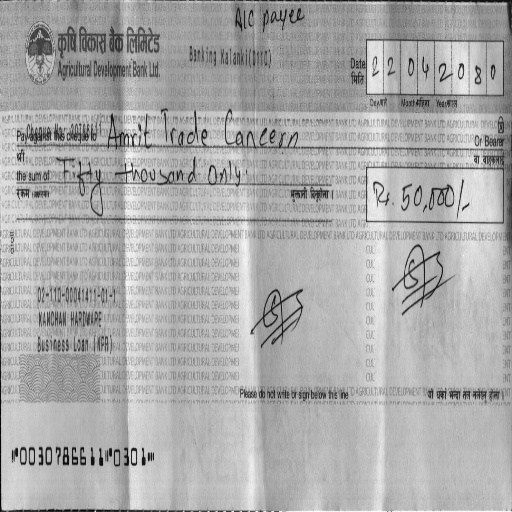 A/C payee
कृषि विकास बैंक लिमिटेड
Agricultural Development Bank Ltd.
Banking Kalanki(0110)
Date
मिति
2 2 0 4 2 0 8 0
Day/गते Month/महिना Year/साल
Pay against this cheque to Amrit Trade Cancern Or Bearer
श्री वा वाहकलाई
the sum of Fifty thousand only.
रकम (अक्षरमा)
Rs. 50,000/-
02-110-00041411-01-1
KANCHAN HARDWARE
Business Loan (NPR)
Please do not write or sign below this line
⑈0030786611⑈0301⑈